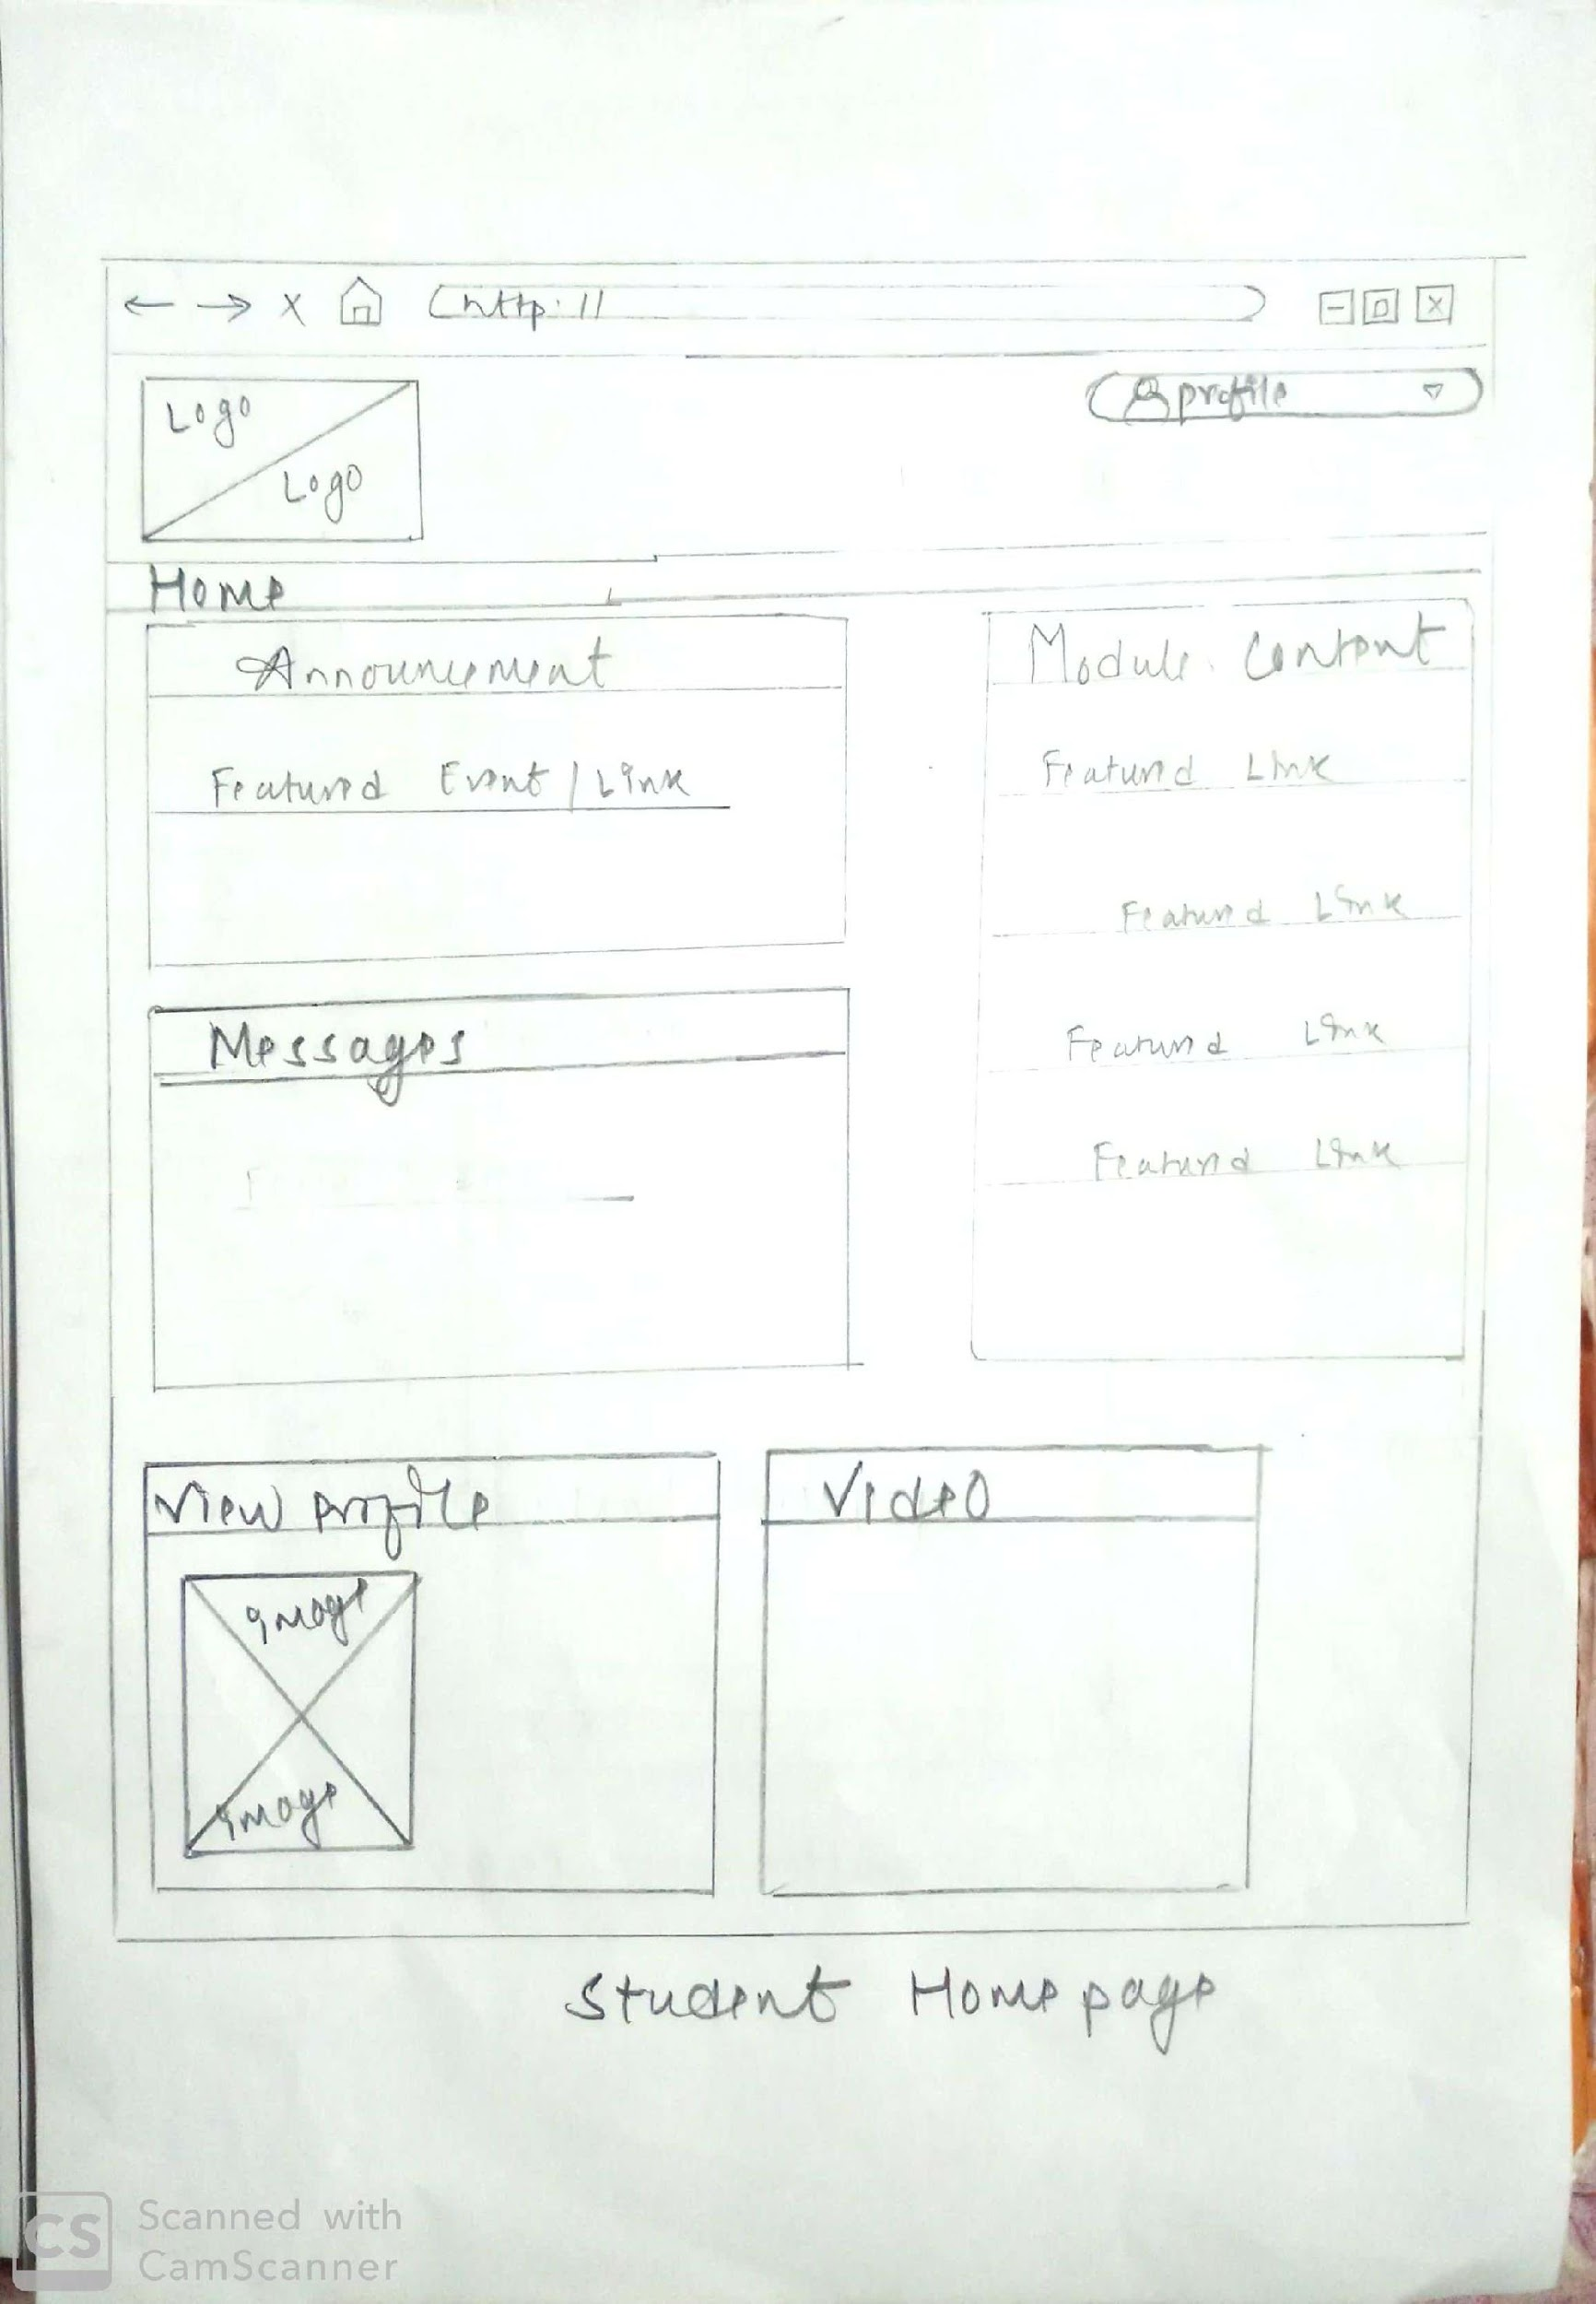 http://
profile
Logo
Logo
Home
Announcement
Featured Event / Link
Messages
Module Content
Featured Link
Featured Link
Featured Link
Featured Link
View profile
image
image
Video
Student Homepage
CS
Scanned with
CamScanner